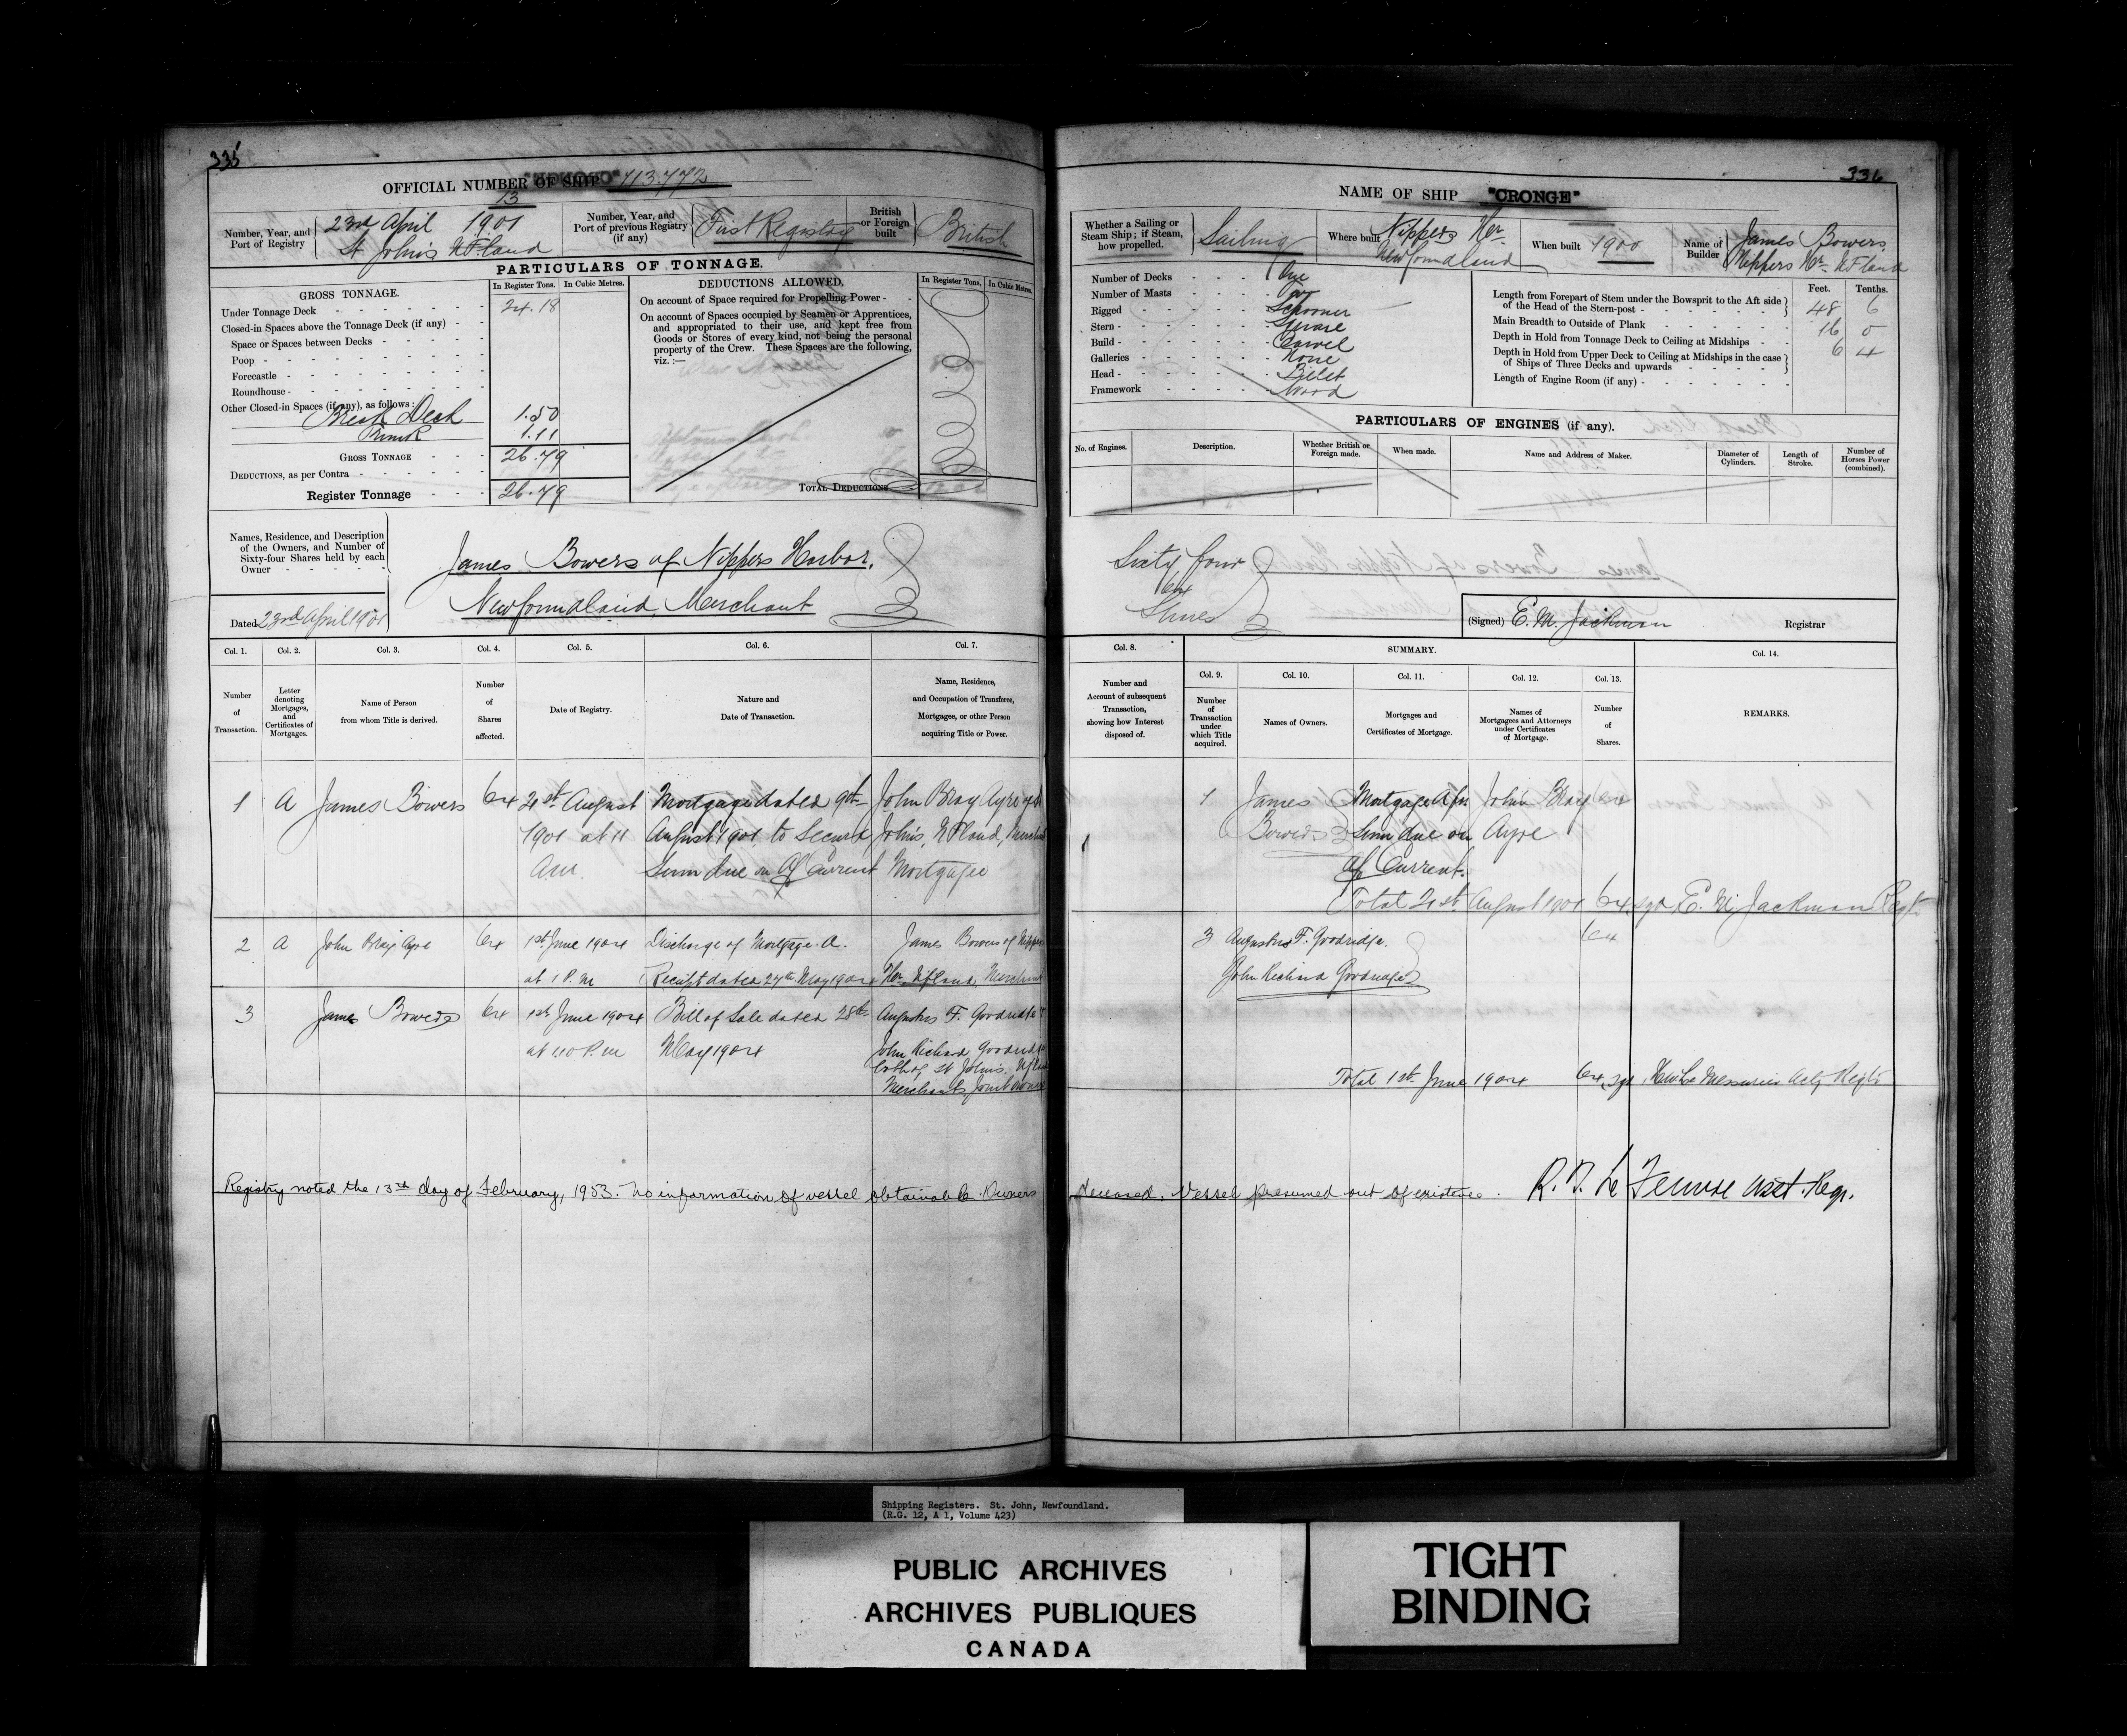 335
OFFICIAL NUMBER OF SHIP 113.772
13
Number, Year, and Port of Registry
23rd April 1901
St John's N.F.land
Number, Year, and Port of previous Registry (if any)
First Registry
British or Foreign built
British
PARTICULARS OF TONNAGE.
GROSS TONNAGE.
In Register Tons.
In Cubic Metres.
Under Tonnage Deck 24.18
Closed-in Spaces above the Tonnage Deck (if any)
Space or Spaces between Decks
Poop
Forecastle
Roundhouse
Other Closed-in Spaces (if any), as follows:
Break Deck 1.50
Trunk 1.11
GROSS TONNAGE 26.79
DEDUCTIONS, as per Contra
Register Tonnage 26.79
DEDUCTIONS ALLOWED.
In Register Tons.
In Cubic Metres.
On account of Space required for Propelling Power
On account of Spaces occupied by Seamen or Apprentices,
and appropriated to their use, and kept free from
Goods or Stores of every kind, not being the personal
property of the Crew. These Spaces are the following,
viz. :—
TOTAL DEDUCTIONS
Names, Residence, and Description
of the Owners, and Number of
Sixty-four Shares held by each
Owner
Dated 23rd April 1901
James Bowers of Nippers Harbor,
Newfoundland, Merchant
Col. 1.
Col. 2.
Col. 3.
Col. 4.
Col. 5.
Col. 6.
Col. 7.
Number of Transaction.
Letter denoting Mortgages, and Certificates of Mortgages.
Name of Person from whom Title is derived.
Number of Shares affected.
Date of Registry.
Nature and Date of Transaction.
Name, Residence, and Occupation of Transferee, Mortgagee, or other Person acquiring Title or Power.
1 A James Bowers 64 21st August Mortgage dated 9th John Bray Ayre of St
1901 at 11 August 1901, to Secure John's, N.F.land, Merchant
A.M. Sum due on a/c Current Mortgagee
2 A John Bray Ayre 64 1st June 1904 Discharge of Mortgage A. James Bowers of Nippers
at 1 P.M Receipt dated 27th May 1904 Hr. Nfland, Merchant
3 James Bowers 64 1st June 1904 Bill of Sale dated 28th Augustus F. Goodridge &
at 1.10 P.m May 1904 John Richard Goodridge
both of St Johns, Nfland
Merchants, Joint Owners
Registry noted the 13th day of February, 1953. No information of vessel obtainable. Owners
336
NAME OF SHIP "CRONGE"
Whether a Sailing or Steam Ship; if Steam, how propelled.
Sailing
Where built
Nippers Hr.
Newfoundland
When built 1900
Name of Builder
James Bowers,
Nippers Hr. N.F.land
Number of Decks One
Number of Masts Two
Rigged Schooner
Stern Square
Build Carvel
Galleries None
Head Billet
Framework Wood
Feet.
Tenths.
Length from Forepart of Stem under the Bowsprit to the Aft side
of the Head of the Stern-post 48 6
Main Breadth to Outside of Plank 16 0
Depth in Hold from Tonnage Deck to Ceiling at Midships 6 4
Depth in Hold from Upper Deck to Ceiling at Midships in the case
of Ships of Three Decks and upwards
Length of Engine Room (if any)
PARTICULARS OF ENGINES (if any).
No. of Engines.
Description.
Whether British or Foreign made.
When made.
Name and Address of Maker.
Diameter of Cylinders.
Length of Stroke.
Number of Horses Power (combined).
Sixty four
64
Shares
(Signed) E. M. Jackman Registrar
Col. 8.
SUMMARY.
Col. 14.
Col. 9.
Col. 10.
Col. 11.
Col. 12.
Col. 13.
Number and Account of subsequent Transaction, showing how Interest disposed of.
Number of Transaction under which Title acquired.
Names of Owners.
Mortgages and Certificates of Mortgage.
Names of Mortgagees and Attorneys under Certificates of Mortgage.
Number of Shares.
REMARKS.
1 James Mortgage A for John Bray 64
Bowers Sum due on Ayre
a/c Current.
Total 21st August 1901 64 sgd E. M. Jackman Regr
3 Augustus F. Goodridge. 64
John Richard Goodridge
Total 1st June 1904 64 sgd H W Le Messurier Actg Regr
deceased. Vessel presumed out of existence. R. D. Le Feuvre Asst. Regr.
Shipping Registers. St. John, Newfoundland.
(R.G. 12, A 1, Volume 423)
PUBLIC ARCHIVES
ARCHIVES PUBLIQUES
CANADA
TIGHT
BINDING